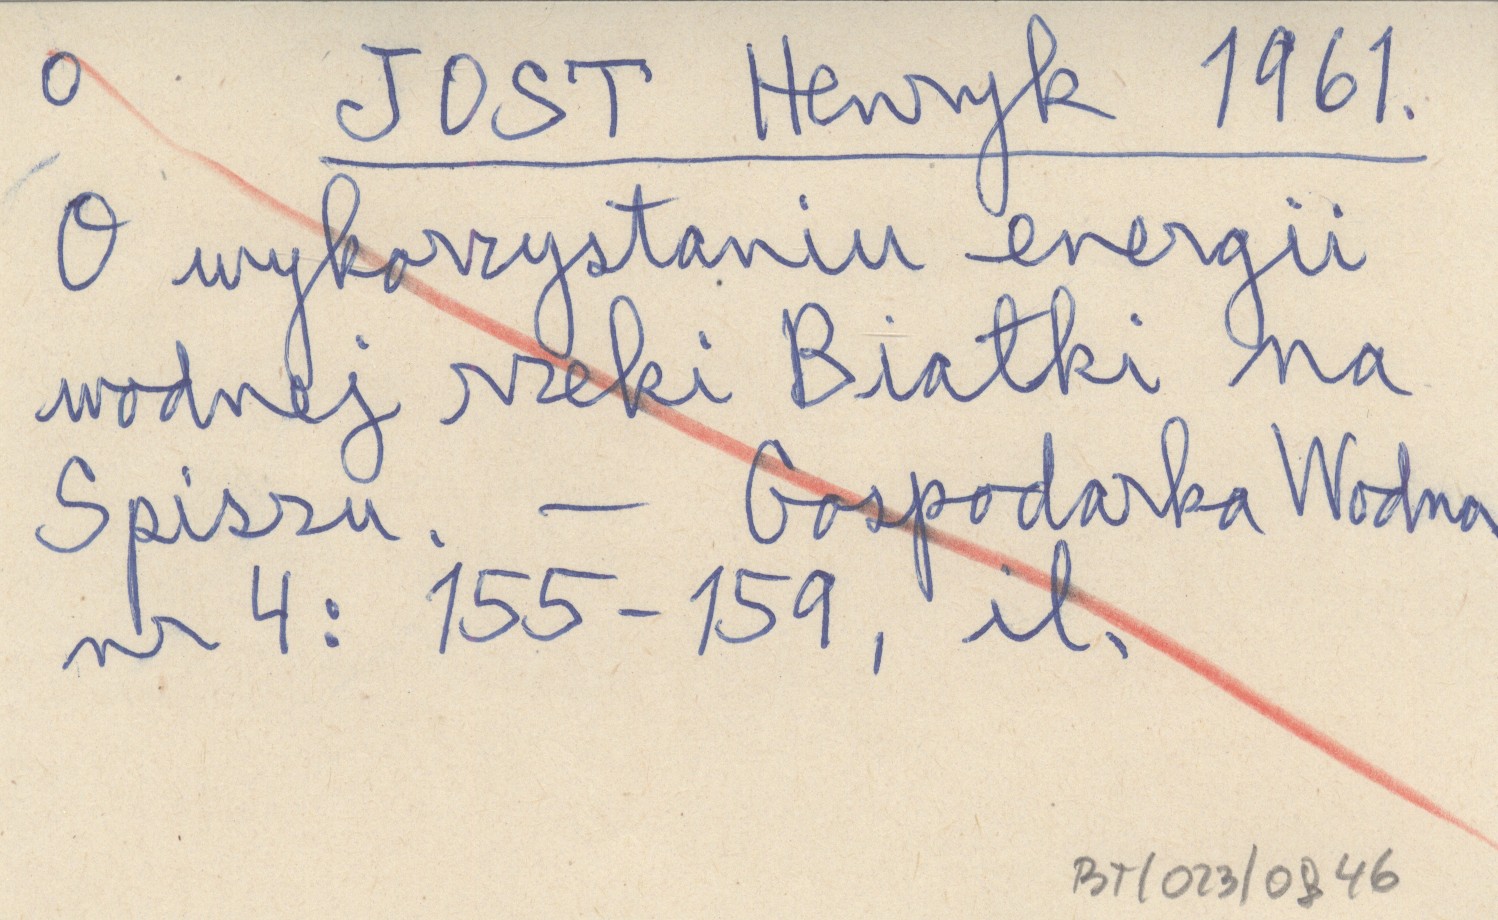 O JOST Henryk 1961.
O wykorzystaniu energii
wodnej rzeki Białki na
Spiszu. — Gospodarka Wodna
nr 4: 155-159, il.
BT/023/0846